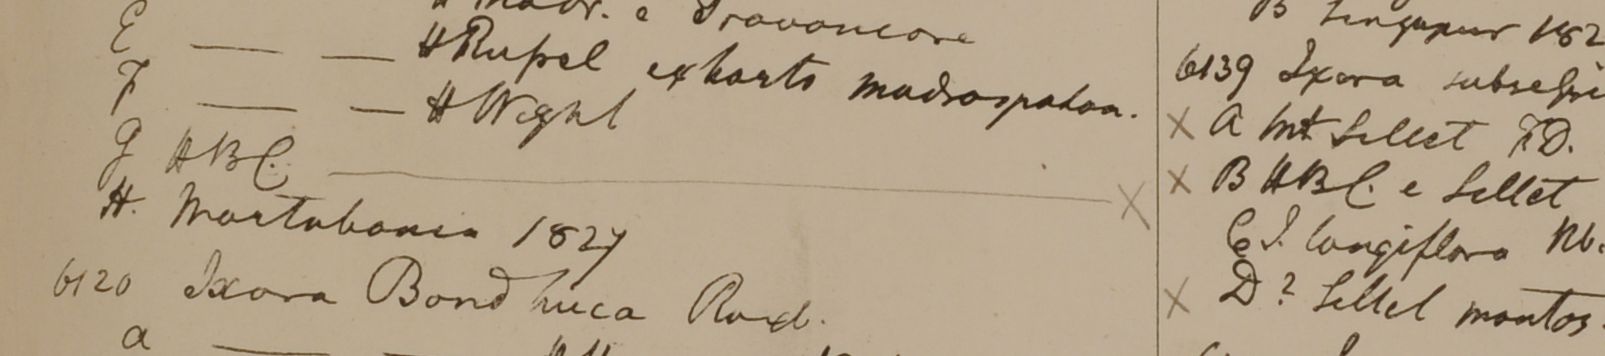 E — — H Madr. e Travancore
F — — H Russel ex horto madraspatan.
— — H Wight
G HBC.
H. Martabania 1827
6120 Ixora Bandhuca Roxb.
a — —
B Singapur 182
6139 Ixora
X A Mt Sillet F.D.
X B HBC. e Sillet
C I. longiflora
X D? Sillet montos.